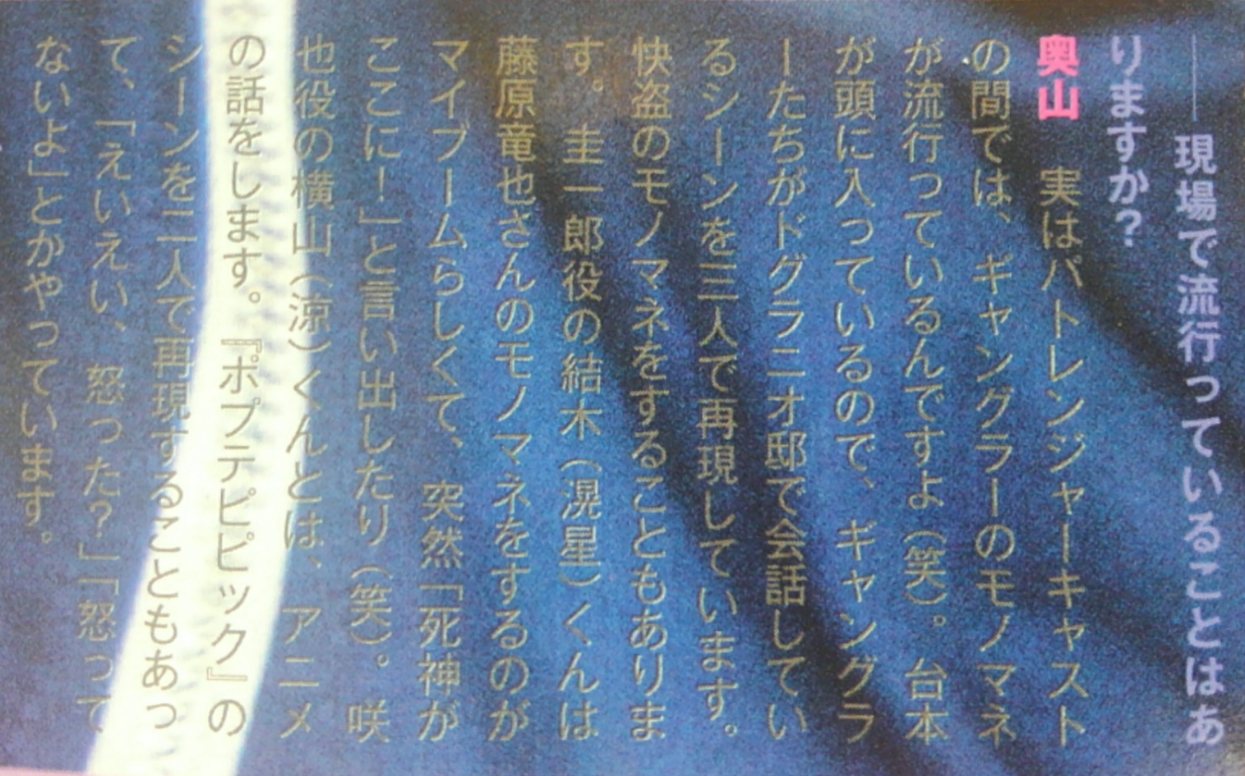 ――現場で流行っていることはあ
りますか?
奥山　実はパトレンジャーキャスト
の間では、ギャングラーのモノマネ
が流行っているんですよ(笑)。台本
が頭に入っているので、ギャングラ
ーたちがドグラニオ邸で会話してい
るシーンを三人で再現しています。
快盗のモノマネをすることもありま
す。圭一郎役の結木(滉星)くんは
藤原竜也さんのモノマネをするのが
マイブームらしくて、突然「死神が
ここに!」と言い出したり(笑)。咲
也役の横山(涼)くんとは、アニメ
の話をします。『ポプテピピック』の
シーンを二人で再現することもあっ
て、「えいえい、怒った?」「怒って
ないよ」とかやっています。